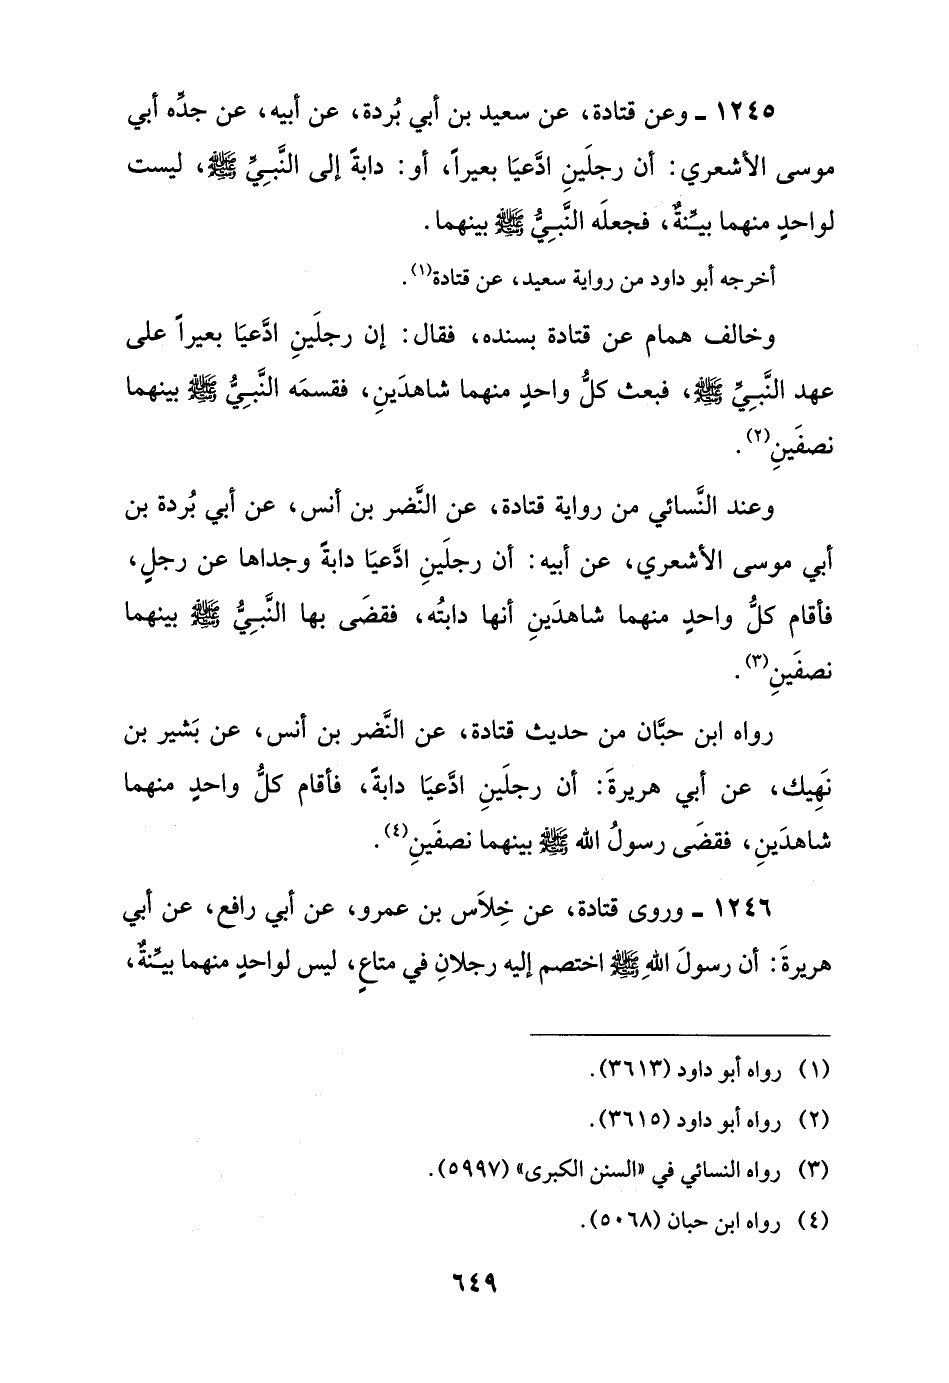 ١٢٤٥ ـ وعن قتادة، عن سعيد بن أبي بُردة، عن أبيه، عن جدِّه أبي
موسى الأشعري: أن رجلَينِ ادَّعيَا بعيراً، أو: دابةً إلى النَّبيِّ ﷺ، ليست
لواحدٍ منهما بيِّنةٌ، فجعلَه النَّبيُّ ﷺ بينهما.
أخرجه أبو داود من رواية سعيد، عن قتادة(١).
وخالف همام عن قتادة بسنده، فقال: إن رجلَينِ ادَّعيَا بعيراً على
عهد النَّبيِّ ﷺ، فبعث كلُّ واحدٍ منهما شاهدَينِ، فقسمَه النَّبيُّ ﷺ بينهما
نصفَينِ(٢).
وعند النَّسائي من رواية قتادة، عن النَّضر بن أنس، عن أبي بُردة بن
أبي موسى الأشعري، عن أبيه: أن رجلَينِ ادَّعيَا دابةً وجداها عن رجلٍ،
فأقام كلُّ واحدٍ منهما شاهدَينِ أنها دابتُه، فقضَى بها النَّبيُّ ﷺ بينهما
نصفَينِ(٣).
رواه ابن حبَّان من حديث قتادة، عن النَّضر بن أنس، عن بَشير بن
نَهِيك، عن أبي هريرةَ: أن رجلَينِ ادَّعيَا دابةً، فأقام كلُّ واحدٍ منهما
شاهدَينِ، فقضَى رسولُ الله ﷺ بينهما نصفَينِ(٤).
١٢٤٦ ـ وروى قتادة، عن خِلاَس بن عمرو، عن أبي رافع، عن أبي
هريرةَ: أن رسولَ اللهِ ﷺ اختصم إليه رجلانِ في متاعٍ، ليس لواحدٍ منهما بيِّنةٌ،
(١) رواه أبو داود (٣٦١٣).
(٢) رواه أبو داود (٣٦١٥).
(٣) رواه النسائي في «السنن الكبرى» (٥٩٩٧).
(٤) رواه ابن حبان (٥٠٦٨).
٦٤٩